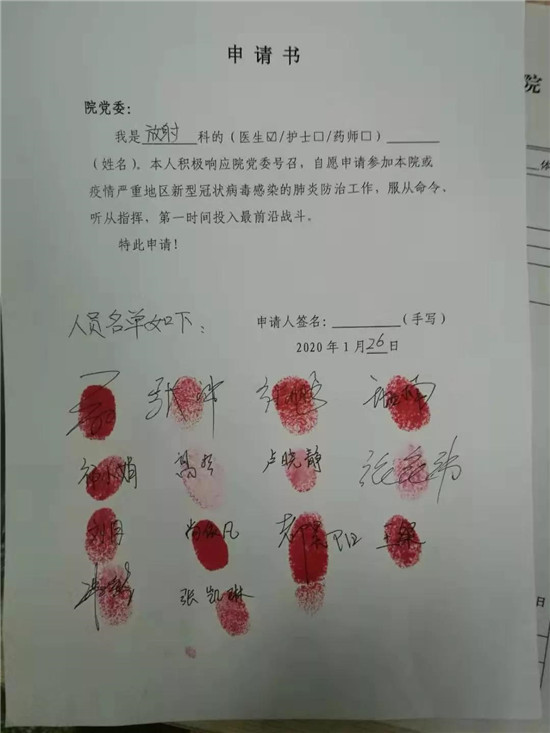 申请书
院党委：
我是放射科的（医生☑/护士□/药师□）______
（姓名）。本人积极响应院党委号召，自愿申请参加本院或
疫情严重地区新型冠状病毒感染的肺炎防治工作，服从命令、
听从指挥，第一时间投入最前沿战斗。
特此申请！
申请人签名：________（手写）
2020年1月26日
人员名单如下：
卢晓静
刘月
张凯琳
院
日